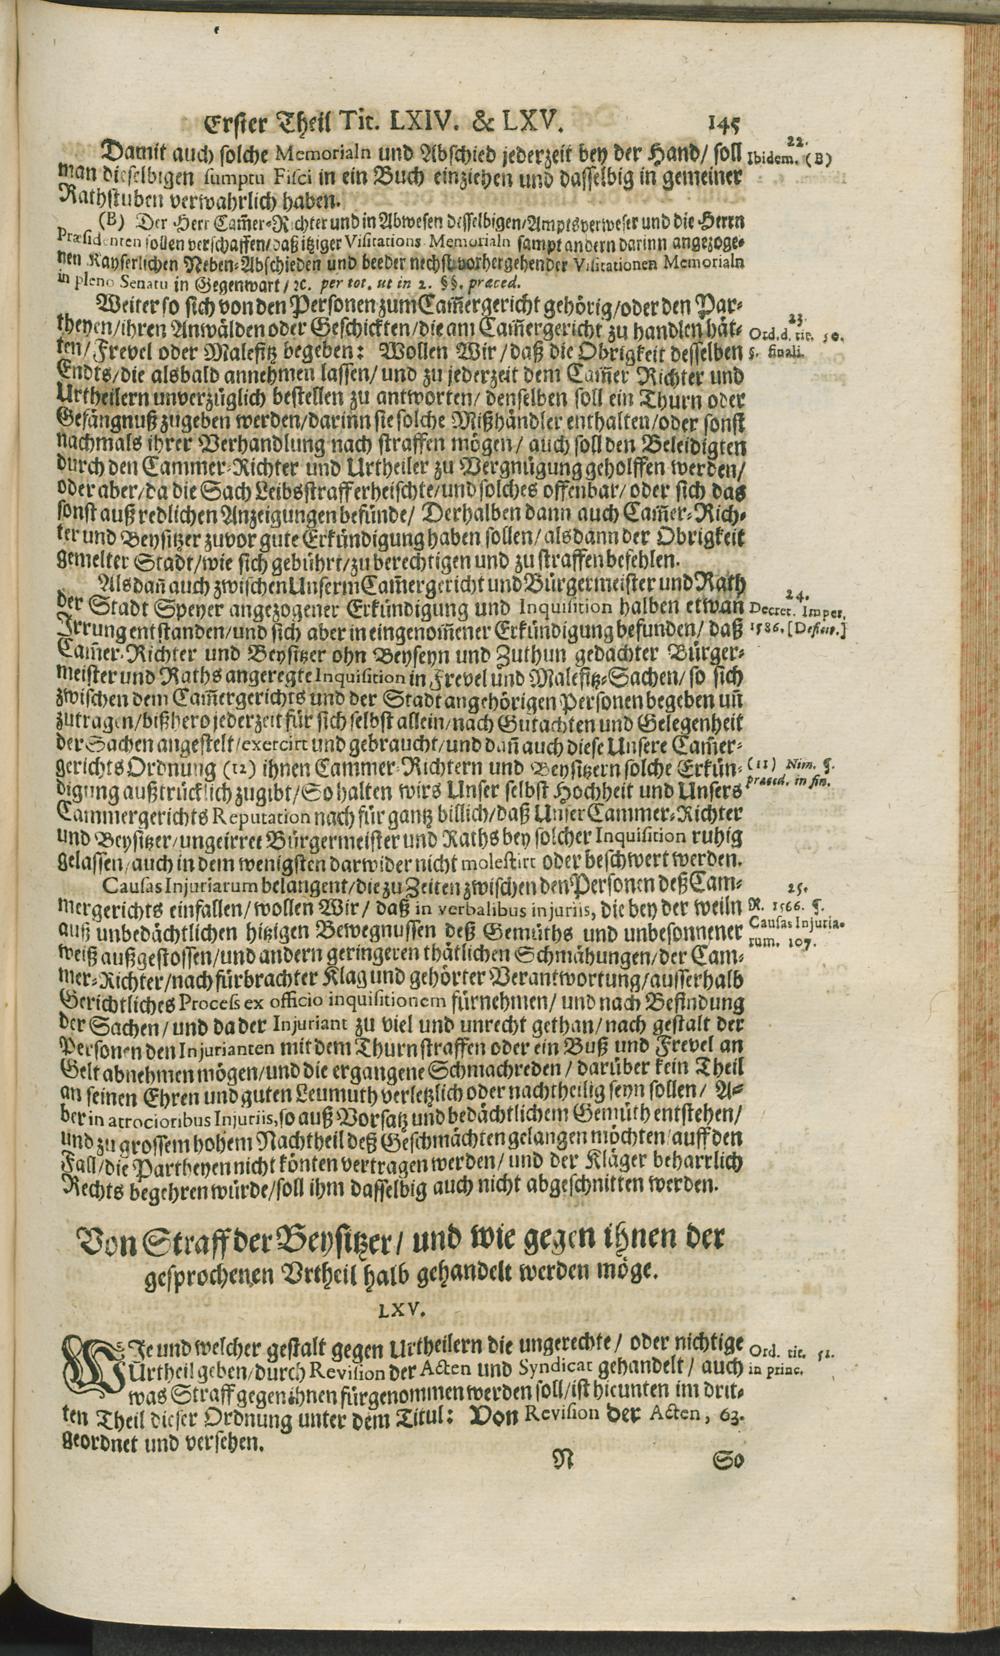 Erster Theil Tit. LXIV. & LXV. 145
Damit auch solche Memorialn und Abschied jederzeit bey der Hand/ soll
man dieselbigen sumptu Fisci in ein Buch einziehen und dasselbig in gemeiner
Rathstuben verwahrlich haben.
22.
Ibidem. (B)
(B) Der Herr Cam̃er-Richter und in Abwesen desselbigen/Amptsverweser und die Herrn
Præsidenten sollen verschaffen/daß itziger Visitations Memorialn sampt andern darinn angezoge-
nen Kayserlichen Neben-Abschieden und beeder nechst vorhergehender Visitationen Memorialn
in pleno Senatu in Gegenwart/ ꝛc. per tot. ut in 2. §§. præced.
Weiter so sich von den Personen zum Cam̃ergericht gehörig/oder den Par-
theyen/ihren Anwälden oder Geschickten/die am Cam̃ergericht zu handlen hät-
ten/Frevel oder Malefitz begeben: Wollen Wir/daß die Obrigkeit desselben
Endts/die alsbald annehmen lassen/ und zu jederzeit dem Cam̃er Richter und
Urtheilern unverzüglich bestellen zu antworten/ denselben soll ein Thurn oder
Gefängnuß zugeben werden/darinn sie solche Mißhändler enthalten/oder sonst
nachmals ihrer Verhandlung nach straffen mögen/ auch soll den Beleidigten
durch den Cammer-Richter und Urtheiler zu Vergnügung geholffen werden/
oder aber/da die Sach Leibsstraff erheischte/und solches offenbar/ oder sich das
sonst auß redlichen Anzeigungen befünde/ Derhalben dann auch Cam̃er-Rich-
ter und Beysitzer zuvor gute Erkündigung haben sollen/ alsdann der Obrigkeit
gemelter Stadt/wie sich gebührt/zu berechtigen und zu straffen befehlen.
23.
Ord. d. tit. 50.
§. finali.
Als dañ auch zwischen Unserm Cam̃ergericht und Bürgermeister und Rath
der Stadt Speyer angezogener Erkündigung und Inquisition halben etwan
Irrung entstanden/und sich aber in eingenom̃ener Erkündigung befunden/ daß
Cam̃er-Richter und Beysitzer ohn Beyseyn und Zuthun gedachter Bürger-
meister und Raths angeregte Inquisition in Frevel und Malefitz-Sachen/ so sich
zwischen dem Cam̃ergerichts und der Stadt angehörigen Personen begeben uñ
zutragen/bißhero jederzeit für sich selbst allein/nach Gutachten und Gelegenheit
der Sachen angestelt/exercirt und gebraucht/und dañ auch diese Unsere Cam̃er-
gerichts Ordnung (12) ihnen Cammer-Richtern und Beysitzern solche Erkün-
digung außtrücklich zugibt/So halten wirs Unser selbst Hochheit und Unsers
Cammergerichts Reputation nach für gantz billich/daß Unser Cammer-Richter
und Beysitzer/ungeirret Bürgermeister und Raths bey solcher Inquisition ruhig
gelassen/auch in dem wenigsten darwider nicht molestirt oder beschwert werden.
24.
Decret. Imper.
1586. [Defier.]
(11) Nim. §.
præced. in fin.
Causas Injuriarum belangent/die zu Zeiten zwischen den Personen deß Cam-
mergerichts einfallen/wollen Wir/ daß in verbalibus injuriis, die bey der weiln
auß unbedächtlichen hitzigen Bewegnussen deß Gemüths und unbesonnener
weiß außgestossen/und andern geringeren thätlichen Schmähungen/der Cam-
mer-Richter/nach fürbrachter Klag und gehörter Verantwortung/ausserhalb
Gerichtliches Process ex officio inquisitionem fürnehmen/ und nach Befindung
der Sachen/ und da der Injuriant zu viel und unrecht gethan/nach gestalt der
Personen den Injurianten mit dem Thurn straffen oder ein Buß und Frevel an
Gelt abnehmen mögen/und die ergangene Schmachreden/ darüber kein Theil
an seinen Ehren und guten Leumuth verletzlich oder nachtheilig seyn sollen/ A-
ber in atrocioribus Injuriis, so auß Vorsatz und bedächtlichem Gemüth entstehen/
und zu grossem hohem Nachtheil deß Geschmächten gelangen möchten/auff den
Fall/die Partheyen nicht könten vertragen werden/ und der Kläger beharrlich
Rechts begehren würde/soll ihm dasselbig auch nicht abgeschnitten werden.
25.
R. 1566. §.
Causas Injuria-
rum. 107.
Von Straff der Beysitzer/ und wie gegen ihnen der
gesprochenen Urtheil halb gehandelt werden möge.
LXV.
WIe und welcher gestalt gegen Urtheilern die ungerechte/ oder nichtige
Urtheil geben/durch Revision der Acten und Syndicat gehandelt/ auch
was Straff gegen ihnen fürgenommen werden soll/ist hieunten im drit-
ten Theil dieser Ordnung unter dem Titul: Von Revision der Acten, 63.
geordnet und versehen.
Ord. tit. 51.
in princ.
N So